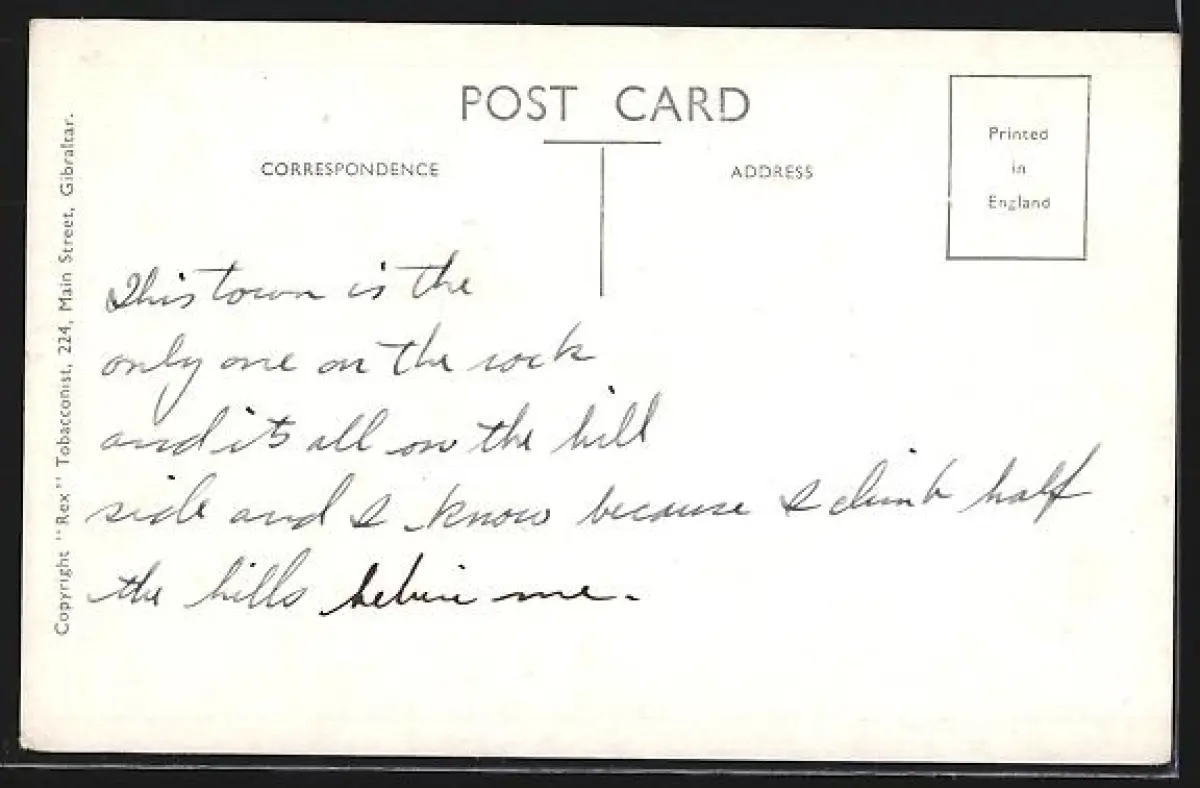 POST CARD
CORRESPONDENCE
ADDRESS
Printed
in
England
Copyright "Rex" Tobacconist, 224, Main Street, Gibraltar.
This town is the
only one on the rock
and it's all on the hill
side and I know because I climb half
the hills believe me.